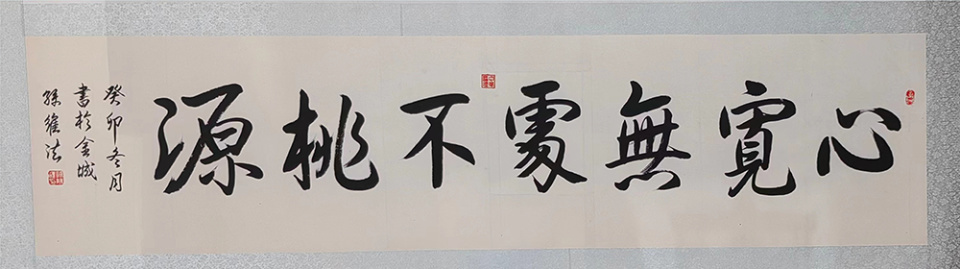 心寬無處不桃源
癸卯冬月
書於金城
孫維法